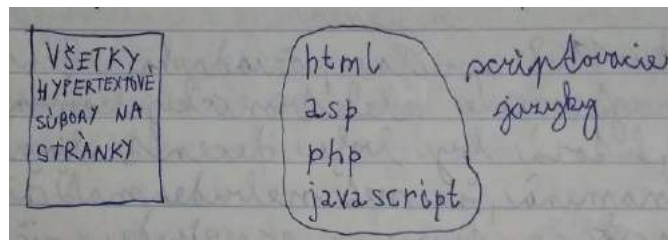 VŠETKY
HYPERTEXTOVÉ
SÚBORY NA
STRÁNKY
html
asp
php
javascript
scriptovacie
jazyky